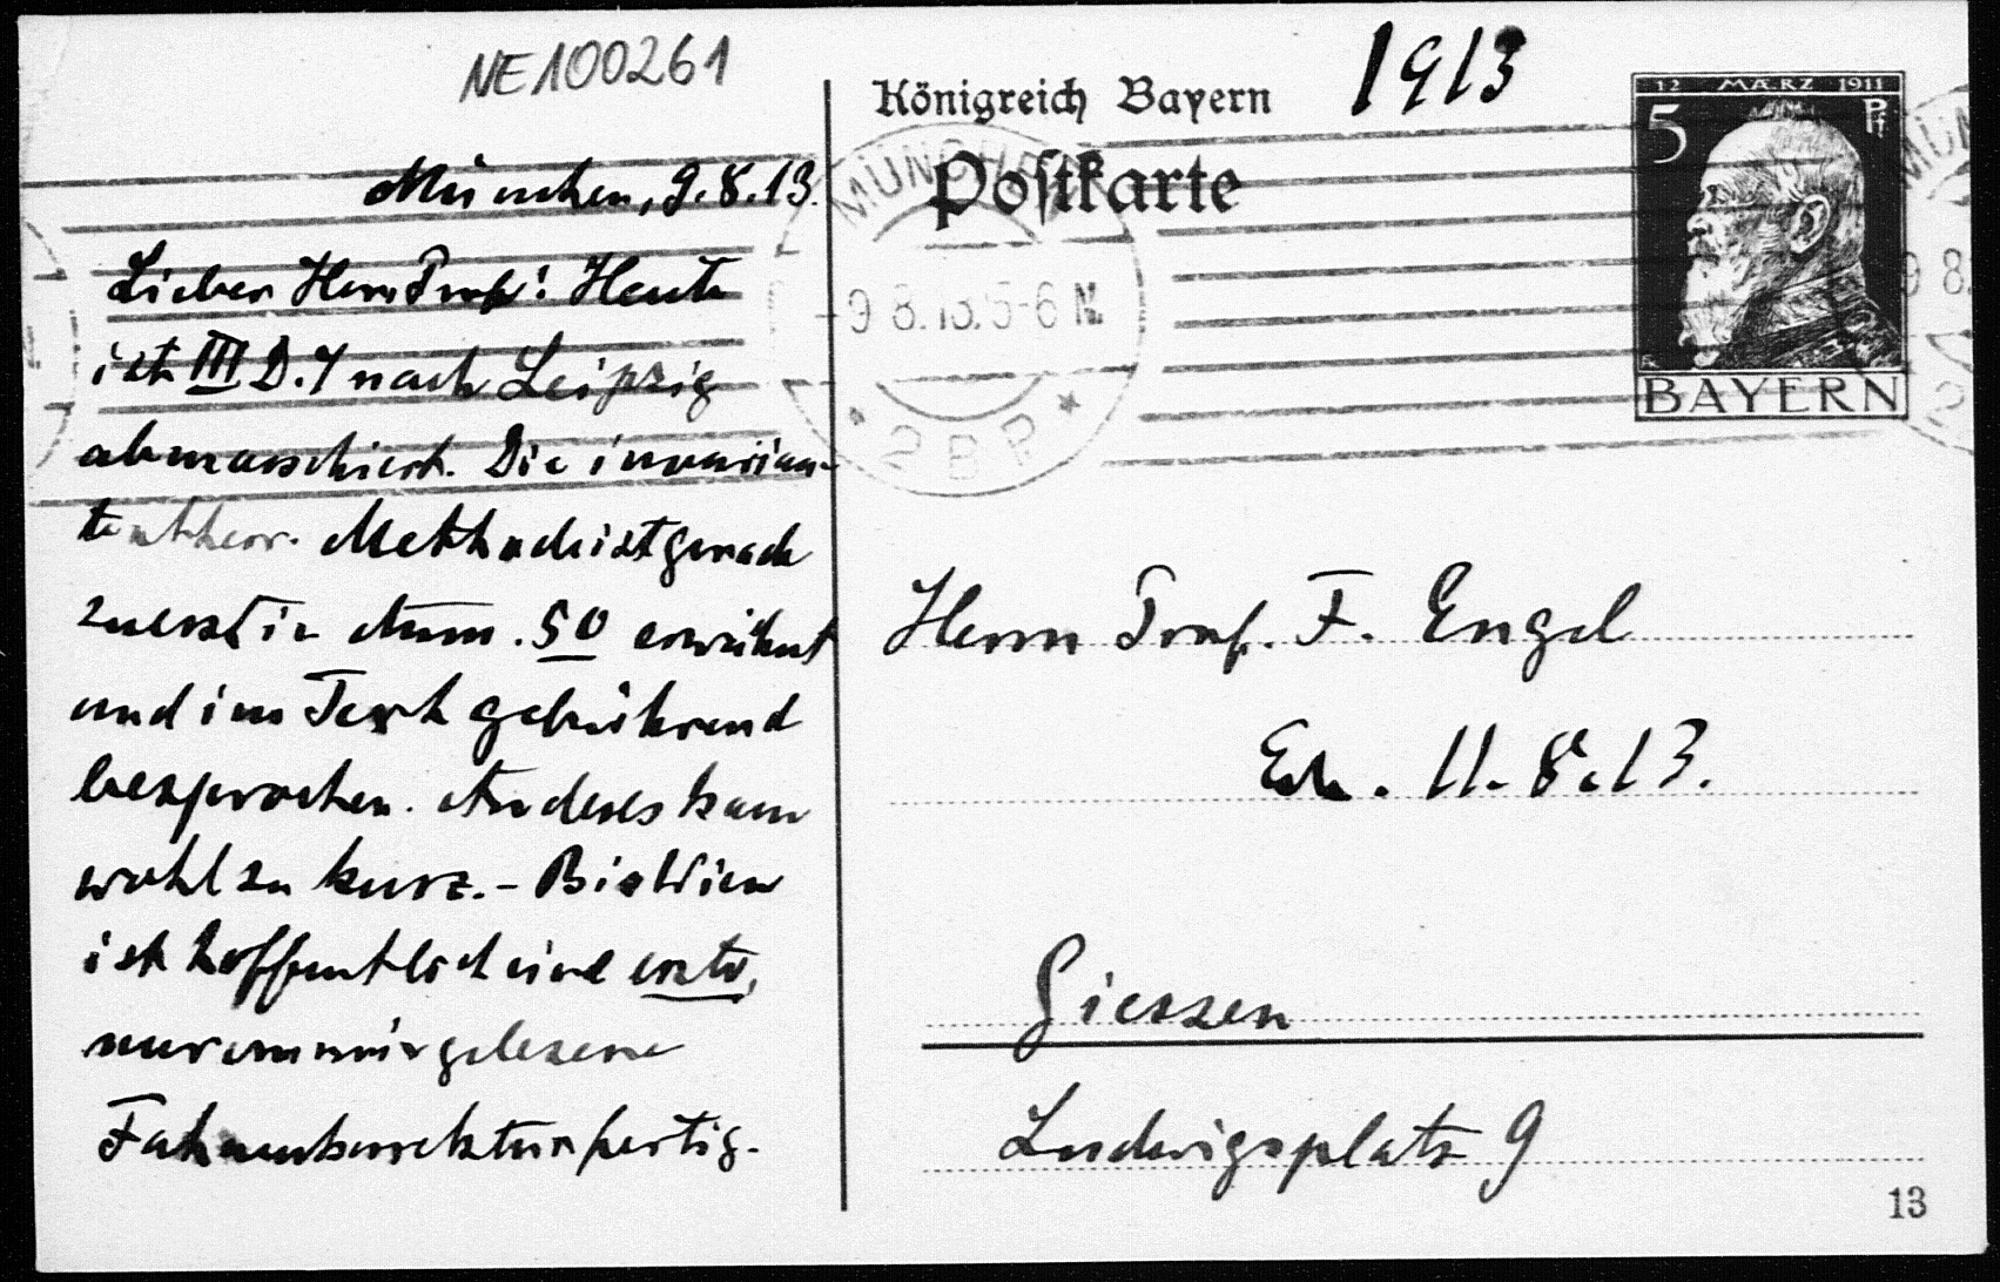 NE100261
München, 9.8.13.
Lieber Herr Prof! Heute
ist III D. 7 nach Leipzig
abmarschiert. Die invarian-
tentheor. Methode ist gerade
zuerst in Num. 50 erwähnt
und im Text gebührend
besprochen. Anderes kam
wohl zu kurz. – Bis Wien
ist hoffentlich eine erste,
nur von mir gelesene
Fahnenkorrektur fertig.
Königreich Bayern
1913
Postkarte
MÜNCHEN
-9 8.13. 5-6 N.
* 2 B P *
12 MÆRZ 1911
5 Pf
BAYERN
MÜN
9 8.
2
Herrn Prof. F. Engel
Eh. 11.8.13.
Giessen
Ludwigsplatz 9
13